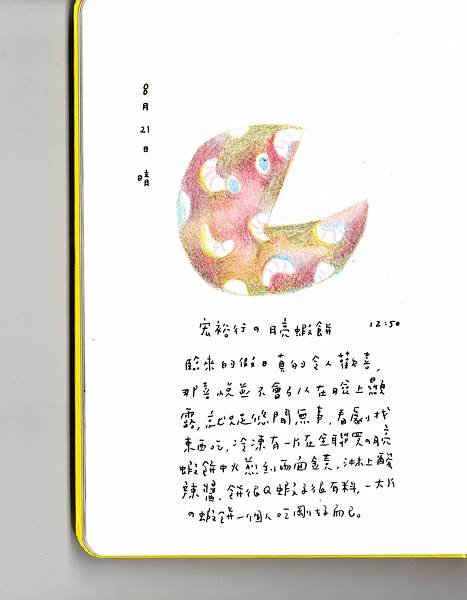 8月21日 晴
宏裕行の月亮蝦餅 12:50
臨來的假日真的令人歡喜,
那喜悅並不會引以在臉上顯
露,就只是悠閒無事,看劇找
東西吃,冷凍有一片在全聯買の月亮
蝦餅中火煎到兩面金黃,沐上酸
辣醬,餅很Q蝦子很有料,一大片
の蝦餅一個人吃剛好而已。